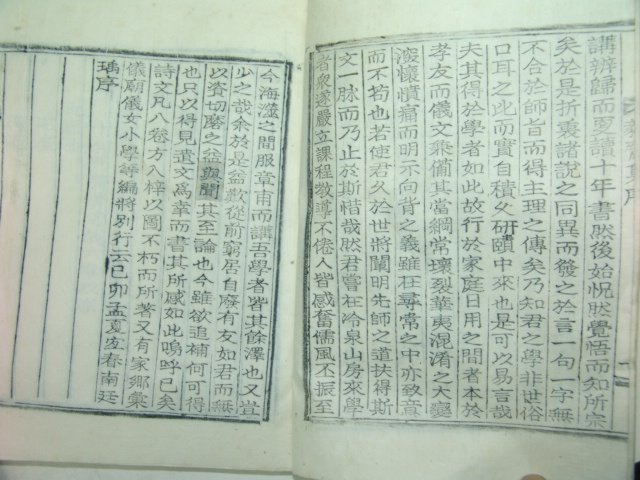 講辨歸而更讀十年書然後始怳然覺悟而知所宗
矣於是折衷諸說之同異而發之於言一句一字無
不合於師旨而得主理之傳矣乃知君之學非世俗
口耳之比而實自積久研賾中來也是可以易言哉
夫其得於學者如此故行於家庭日用之間者本於
孝友而儀文兼備其當綱常壞裂華夷混淆之大變
淩懷憤痛而明示向背之義雖在尋常之中亦致意
而不苟也若使君久於世將闡明先師之道扶得斯
文一脉而乃止於斯惜哉然君嘗在冷泉山房來學
者衆遂嚴立課程敎導不倦人皆感奮儒風不振至
今海澨之間服章甫而講吾學者皆其餘澤也又豈
少之哉余於是益歎從前窮居自廢有友如君而無
以資切磨之益與聞其至論也今雖欲追補何可得
也只以得見遺文爲幸而書其所感如此嗚呼已矣
詩文凡八卷方入梓以圖不朽而所著又有家鄕彙
儀廟儀女小學等編將別行云己卯孟夏宜春南廷
瑀序